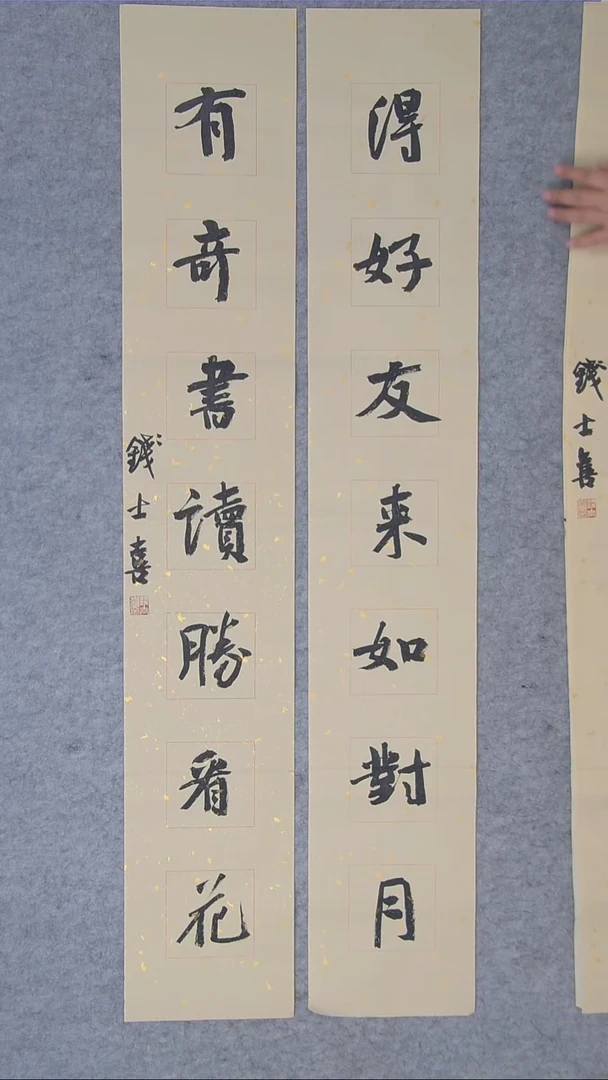 得好友来如對月
有奇書讀勝看花
錢士喜
錢士喜